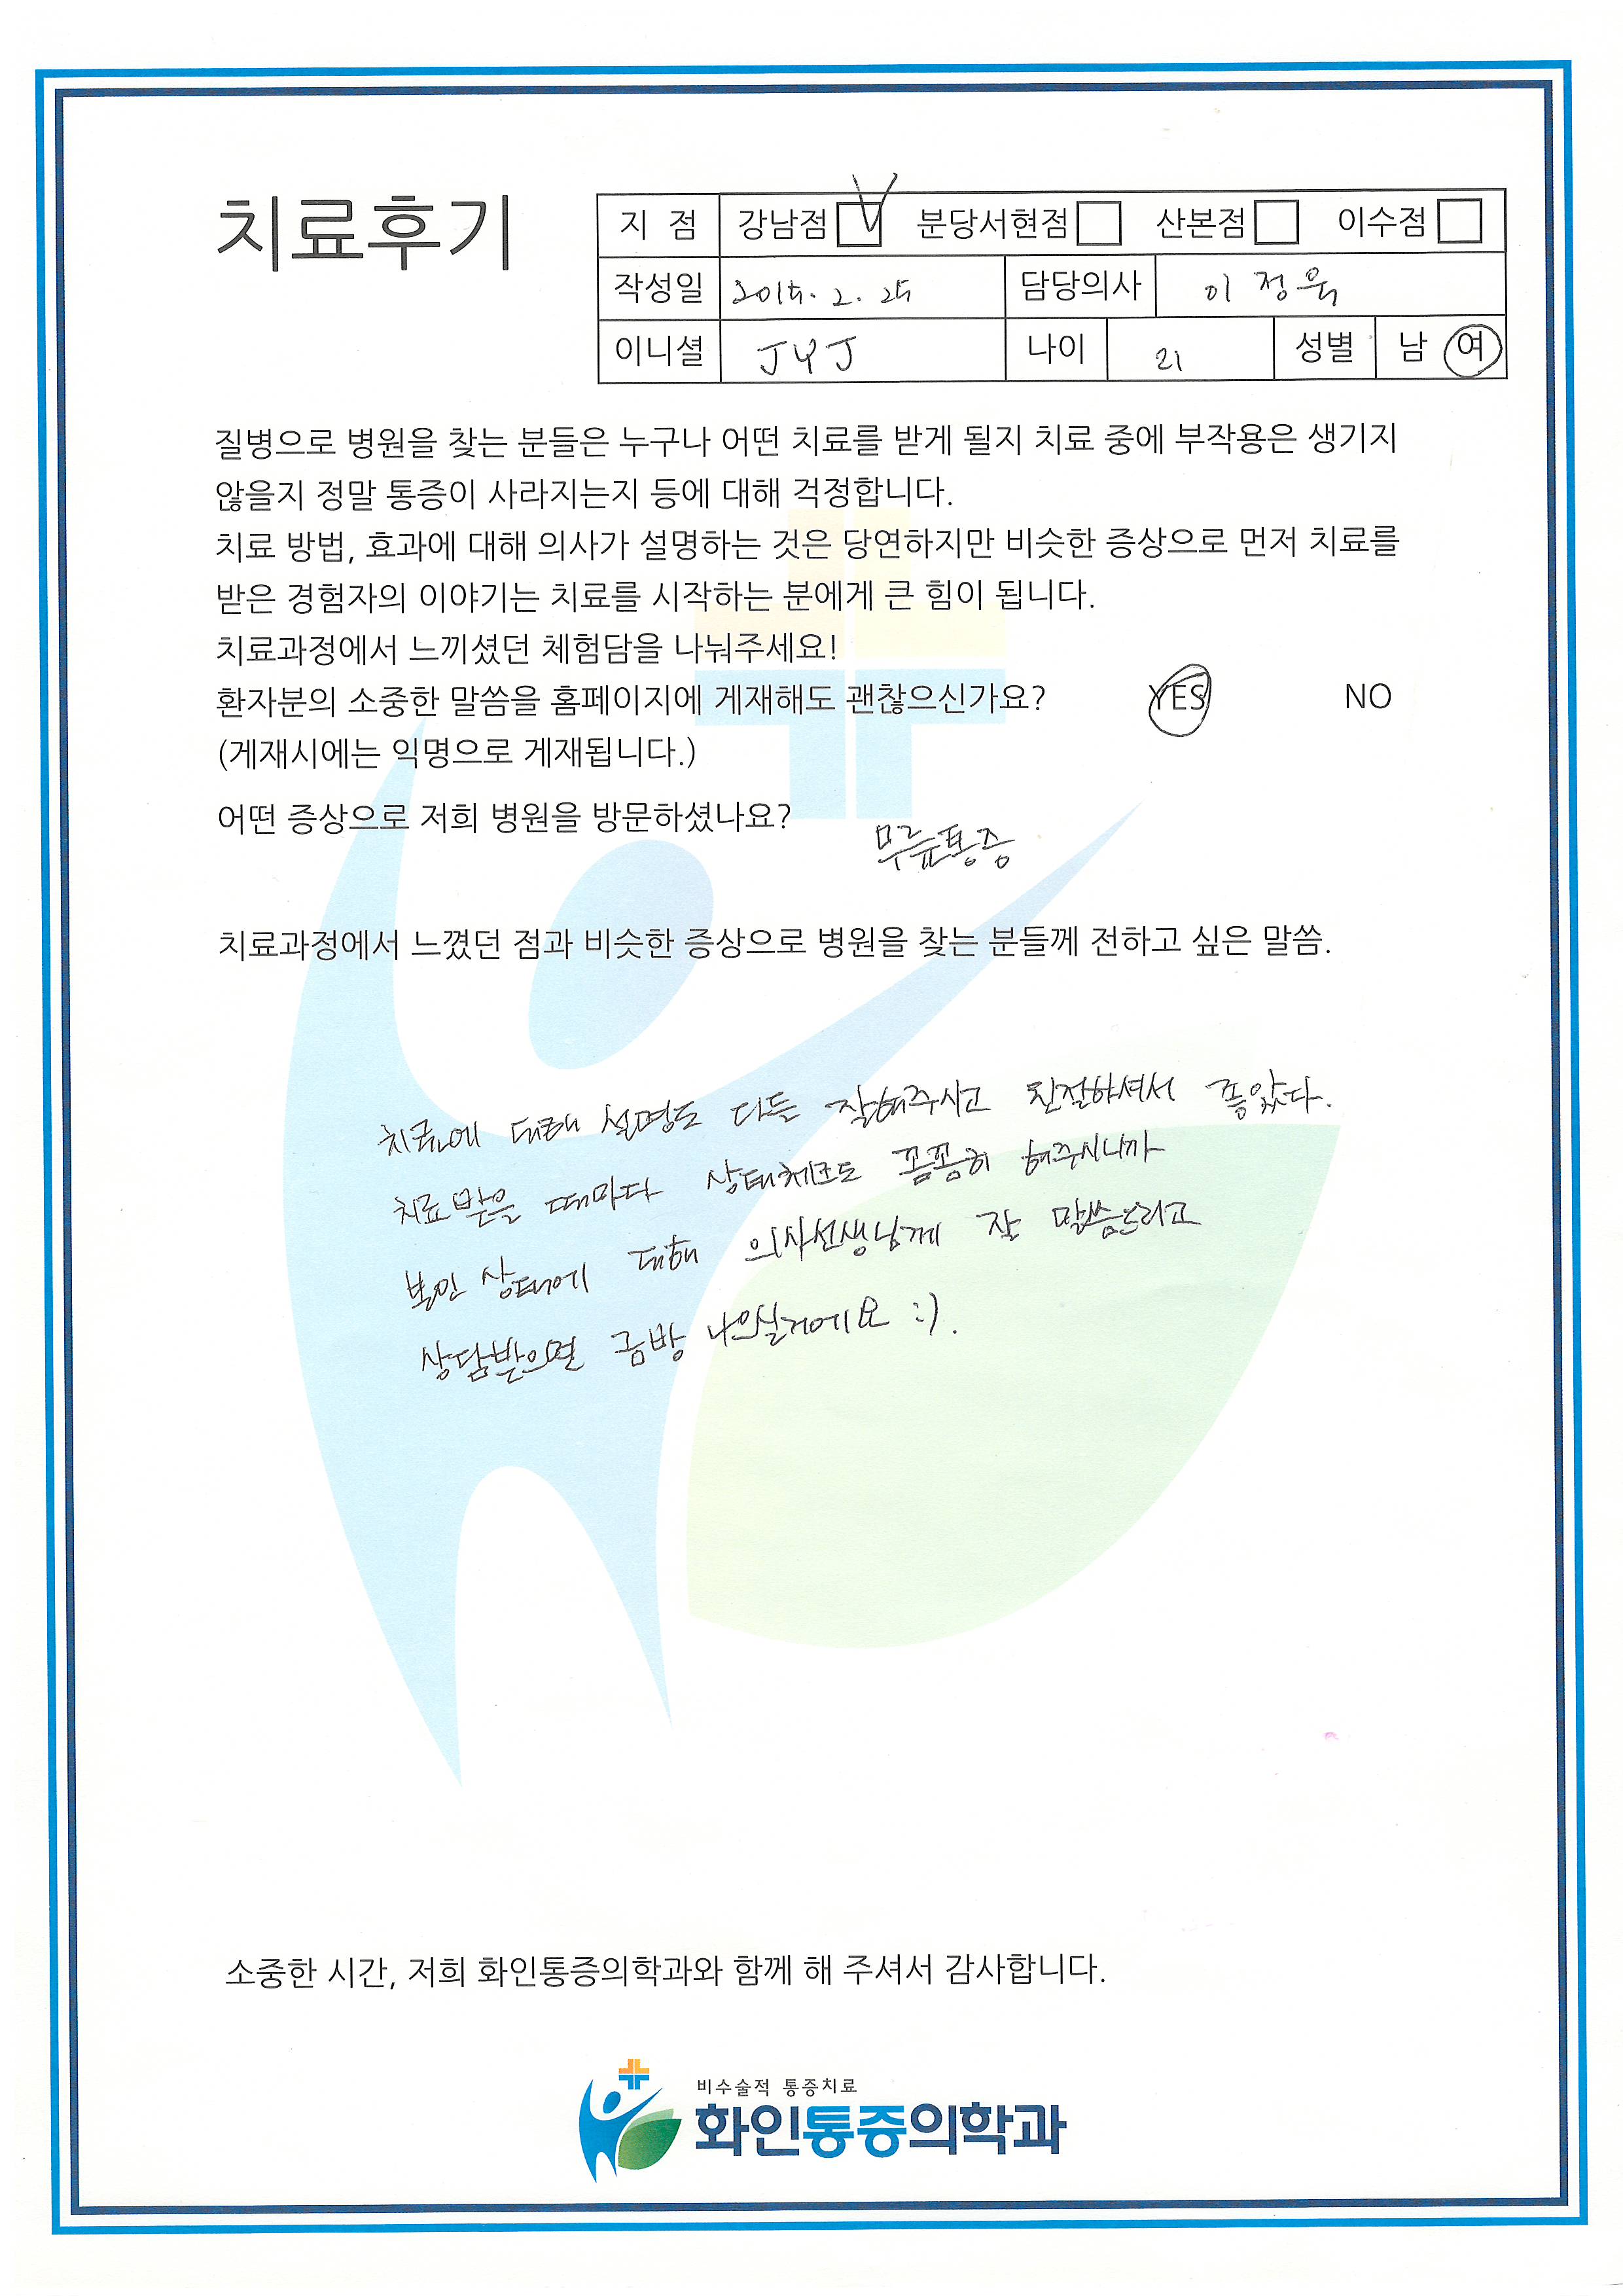 치료후기
지 점 강남점 분당서현점 산본점 이수점
작성일 2015. 2. 25 담당의사 이정욱
이니셜 JYJ 나이 21 성별 남 여
질병으로 병원을 찾는 분들은 누구나 어떤 치료를 받게 될지 치료 중에 부작용은 생기지
않을지 정말 통증이 사라지는지 등에 대해 걱정합니다.
치료 방법, 효과에 대해 의사가 설명하는 것은 당연하지만 비슷한 증상으로 먼저 치료를
받은 경험자의 이야기는 치료를 시작하는 분에게 큰 힘이 됩니다.
치료과정에서 느끼셨던 체험담을 나눠주세요!
환자분의 소중한 말씀을 홈페이지에 게재해도 괜찮으신가요? YES NO
(게재시에는 익명으로 게재됩니다.)
어떤 증상으로 저희 병원을 방문하셨나요?
무릎통증
치료과정에서 느꼈던 점과 비슷한 증상으로 병원을 찾는 분들께 전하고 싶은 말씀.
치료에 대해 설명도 다들 잘해주시고 친절하셔서 좋았다.
치료받을 때마다 상태체크도 꼼꼼히 해주시니까
본인 상태에 대해 의사선생님께 잘 말씀드리고
상담받으면 금방 나으실거에요 :).
소중한 시간, 저희 화인통증의학과와 함께 해 주셔서 감사합니다.
비수술적 통증치료
화인통증의학과